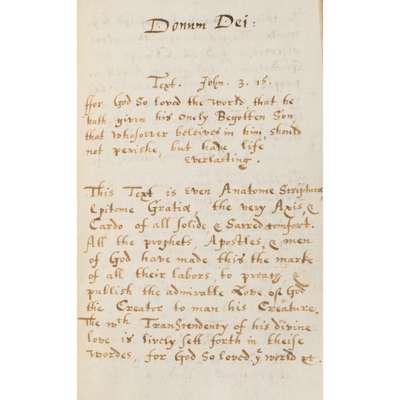 Donum Dei:
Text. John. 3. 16.
ffor God So loved the world, that he
hath given his Onely Begotten Son,
that whosoever beleives in him, should
not perishe, but have life
Everlasting.
This Text is even Anatome Scripturæ,
Epitome Gratiæ, the very Axis, &
Cardo of all solide, & Sacred comfort.
All the prophets, Apostles, & men
of God have made this the marke
of all their labors, to preach, &
publish the admirable Love of God
the Creator to man his Creature.
The wch Transcendenty of his divine
love is lively sett forth in theise
wordes, for God So loved ye world &c.